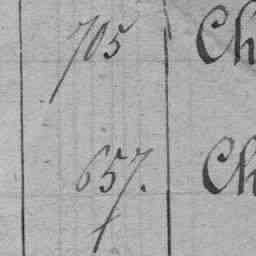 705 Ch
657. Ch